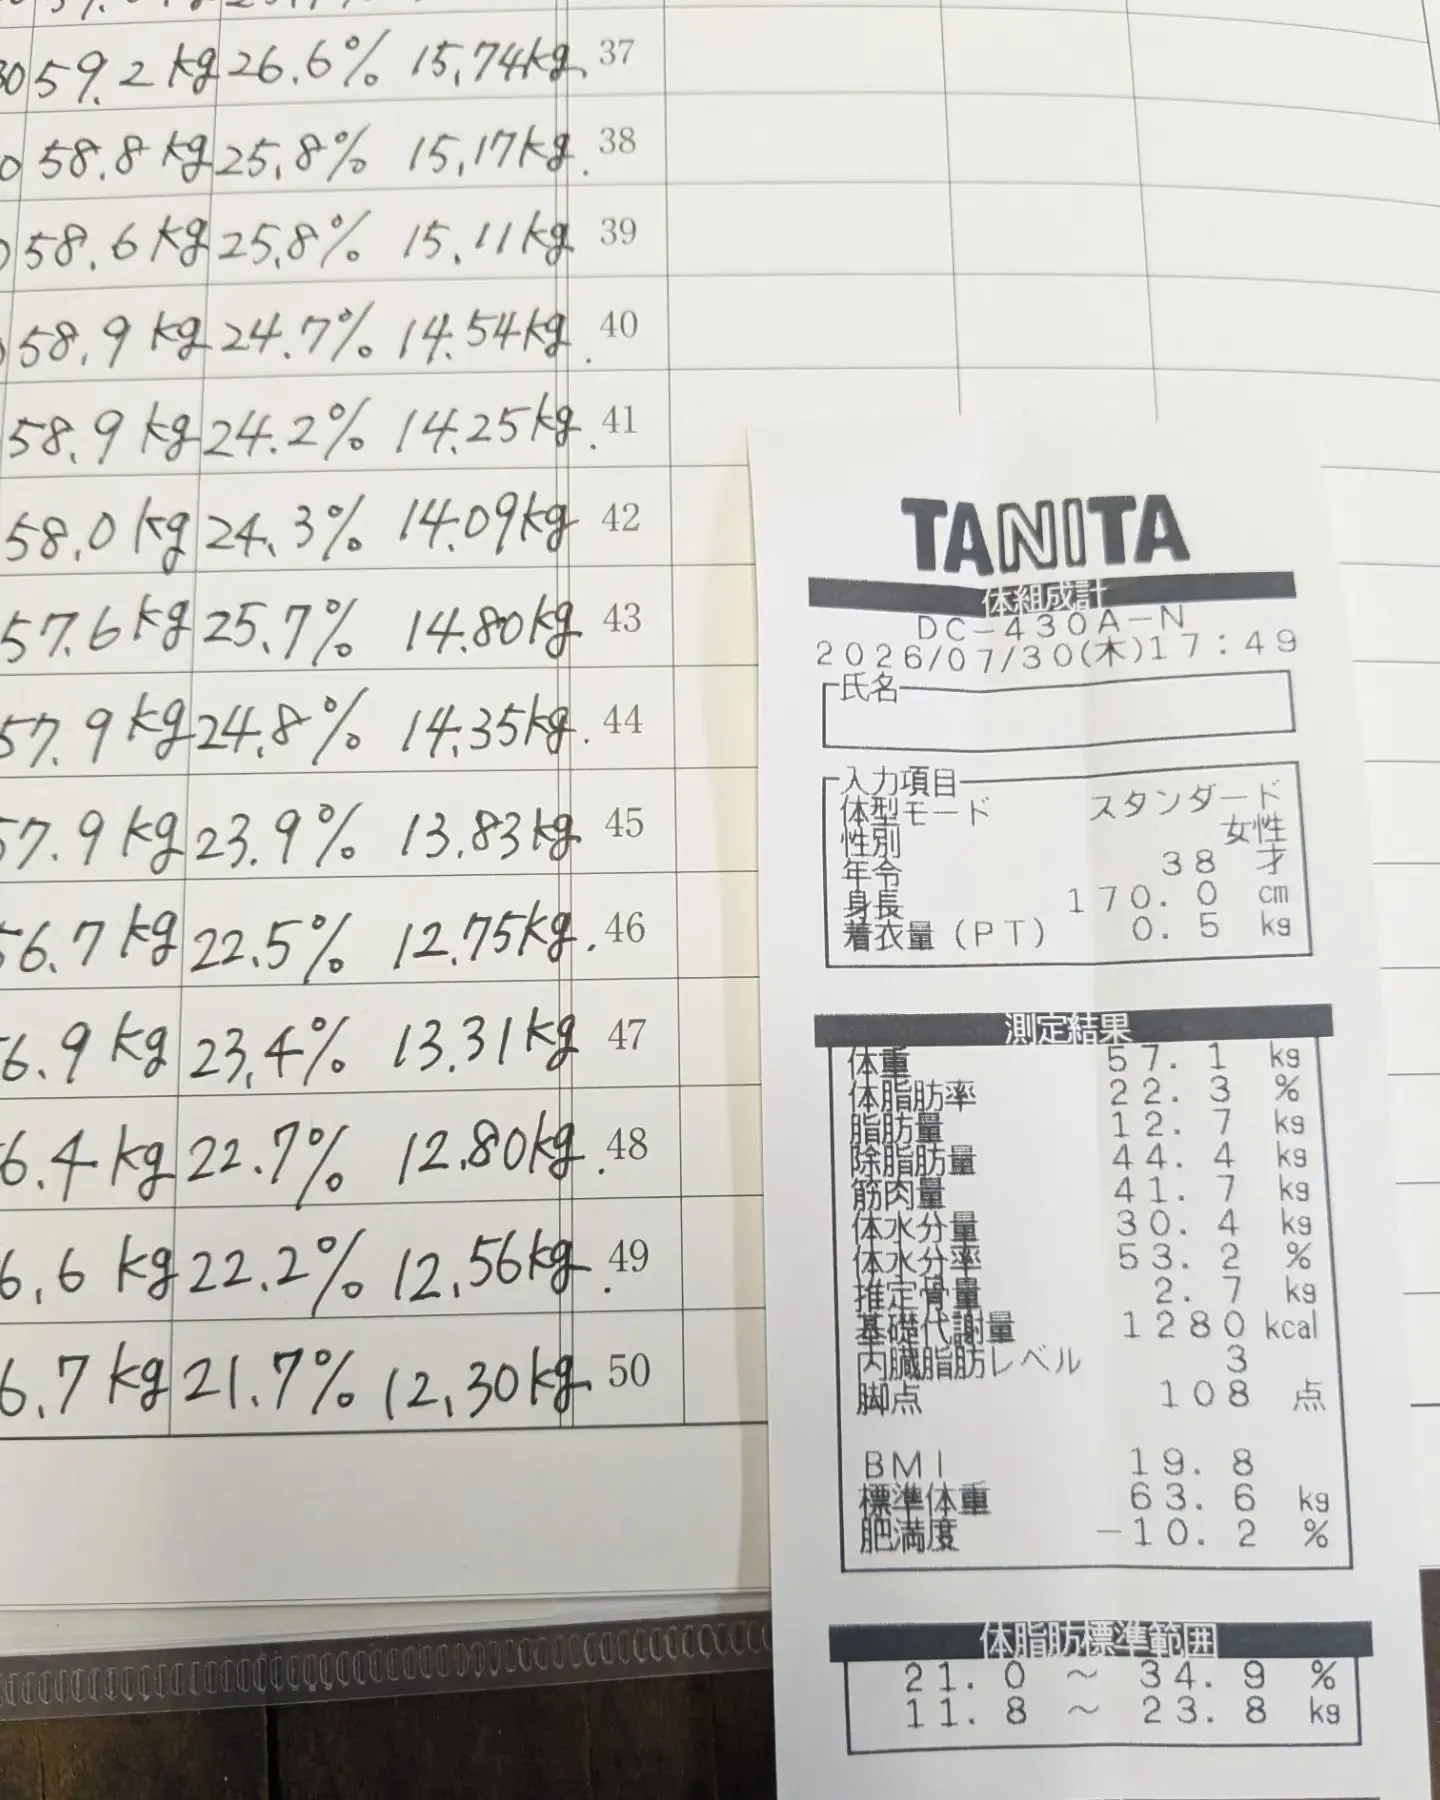 59.2kg 26.6% 15.74kg 37
58.8kg 25.8% 15.17kg. 38
58.6kg 25.8% 15.11kg 39
58.9kg 24.7% 14.54kg. 40
58.9kg 24.2% 14.25kg. 41
58.0kg 24.3% 14.09kg 42
57.6kg 25.7% 14.80kg 43
57.9kg 24.8% 14.35kg. 44
57.9kg 23.9% 13.83kg 45
56.7kg 22.5% 12.75kg. 46
6.9kg 23.4% 13.31kg 47
6.4kg 22.7% 12.80kg. 48
6.6kg 22.2% 12.56kg. 49
6.7kg 21.7% 12.30kg 50
TANITA
体組成計
DC-430A-N
2026/07/30(木)17:49
氏名
入力項目
体型モード スタンダード
性別 女性
年令 38 才
身長 170.0 cm
着衣量(PT) 0.5 kg
測定結果
体重 57.1 kg
体脂肪率 22.3 %
脂肪量 12.7 kg
除脂肪量 44.4 kg
筋肉量 41.7 kg
体水分量 30.4 kg
体水分率 53.2 %
推定骨量 2.7 kg
基礎代謝量 1280 kcal
内臓脂肪レベル 3
脚点 108 点
BMI 19.8
標準体重 63.6 kg
肥満度 -10.2 %
体脂肪標準範囲
21.0 ~ 34.9 %
11.8 ~ 23.8 kg